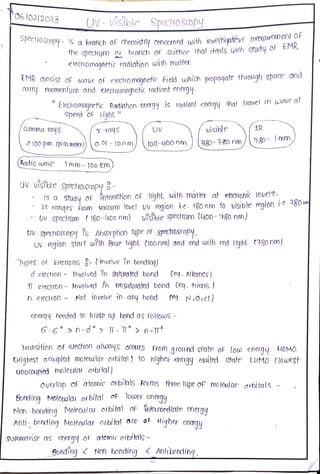 06/02/2023
UV-Visible Spectroscopy
Spectroscopy - is a branch of chemistry concerned with investigative measurement of
the spectrum or branch of science that deals with study of EMR
electromagnetic radiation with matter.
EMR consist of wave of electromagnetic Field which propogate through space and
carry momentum and electromagnetic radiant energy
" Electromagnetic Radiation energy is radiant energy that travel in wave at
speed of light "
Gamma rays
< 100 pm
x-rays
0.01 - 10nm
UV
100-400 nm
visible
380-780 nm
IR
780 - 1mm
Radio wave 1mm - 100 km
UV visible spectroscopy :-
- Is a study of interaction of light with matter at electronic levels.
- It ranges from vaccum level UV region i.e. 180 nm to visible region i.e. 780 nm
- UV spectrum (180-400 nm) visible spectrum (400-780 nm)
UV spectroscopy is Absorption type of spectroscopy.
UV region start with Blue light (100nm) and end with red light (780nm)
Types of Electrons :- (Involve in bonding)
σ electron - Involved in saturated bond (eg. Alkanes)
π electron - Involved in unsaturated bond (eg. trienes)
n electron - Not involve in any bond (eg. N,O,Cl)
energy needed to break up bond as follows -
σ-σ* > n-σ* > π-π* > n-π*
Transition of electron always occurs from ground state of low energy HOMO
(Highest occupied molecular orbital) to higher energy excited state LUMO (lowest
unoccupied molecular orbital)
Overlap of atomic orbitals forms three type of molecular orbitals -
Bonding Molecular orbital of lower energy
Non-bonding Molecular orbital of intermediate energy
Anti-bonding Molecular orbital are of Higher energy
summarise as energy of atomic orbitals -
Bonding < Non bonding < Antibonding.